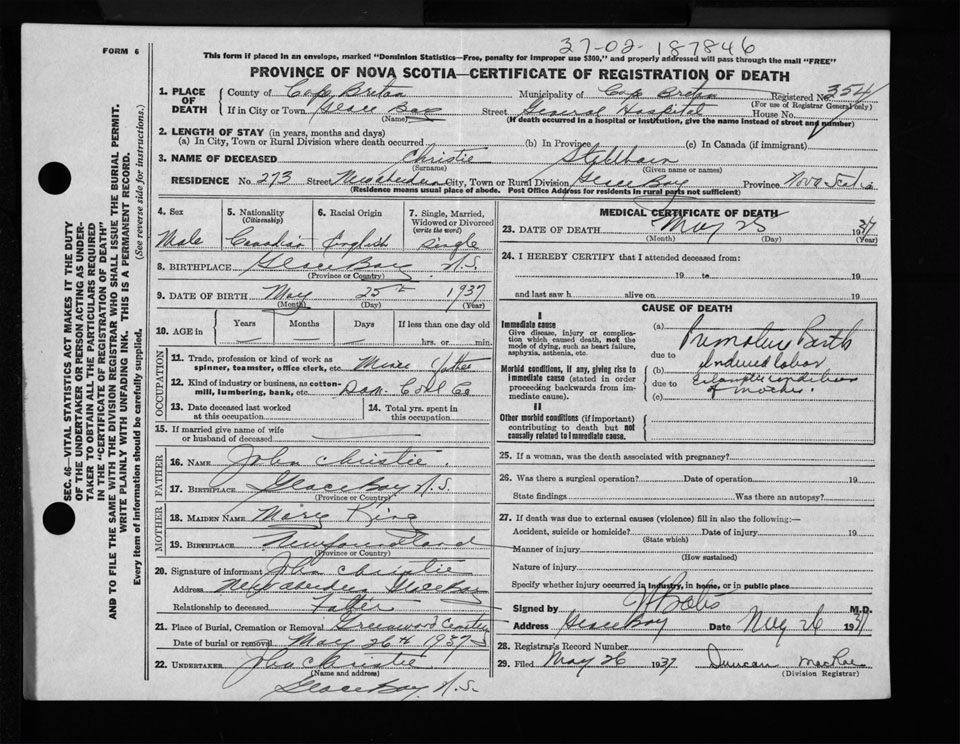 27-02-187846
FORM 6
This form if placed in an envelope, marked "Dominion Statistics—Free, penalty for improper use $300," and properly addressed will pass through the mail "FREE"
PROVINCE OF NOVA SCOTIA—CERTIFICATE OF REGISTRATION OF DEATH
SEC. 46—VITAL STATISTICS ACT MAKES IT THE DUTY
OF THE UNDERTAKER OR PERSON ACTING AS UNDER-
TAKER TO OBTAIN ALL THE PARTICULARS REQUIRED
IN THE "CERTIFICATE OF REGISTRATION OF DEATH"
AND TO FILE THE SAME WITH THE DIVISION REGISTRAR WHO SHALL ISSUE THE BURIAL PERMIT.
WRITE PLAINLY WITH UNFADING INK. THIS IS A PERMANENT RECORD.
Every item of information should be carefully supplied. (See reverse side for instructions.)
1. PLACE OF DEATH County of Cape Breton Municipality of Cape Breton Registered No. 354
(For use of Registrar General only)
If in City or Town Glace Bay Street General Hospital House No.
(Name) (If death occurred in a hospital or institution, give the name instead of street and number)
2. LENGTH OF STAY (in years, months and days)
(a) In City, Town or Rural Division where death occurred (b) In Province (c) In Canada (if immigrant)
3. NAME OF DECEASED Christie Stillborn
(Surname) (Given name or names)
RESIDENCE No. 273 Street City, Town or Rural Division Glace Bay Province Nova Scotia
(Residence means usual place of abode. Post Office Address for residents in rural parts not sufficient)
4. Sex 5. Nationality 6. Racial Origin 7. Single, Married,
(Citizenship) Widowed or Divorced
(write the word)
Male Canadian English Single
8. BIRTHPLACE Glace Bay N.S.
(Province or Country)
9. DATE OF BIRTH May 25th 1937
(Month) (Day) (Year)
10. AGE in Years Months Days If less than one day old
hrs. or min.
OCCUPATION
11. Trade, profession or kind of work as
spinner, teamster, office clerk, etc.
12. Kind of industry or business, as cotton-
mill, lumbering, bank, etc. Dom. Coal Co
13. Date deceased last worked
at this occupation
14. Total yrs. spent in
this occupation
15. If married give name of wife
or husband of deceased
FATHER
16. NAME John Christie
17. BIRTHPLACE Glace Bay N.S.
(Province or Country)
MOTHER
18. MAIDEN NAME Mary King
19. BIRTHPLACE Newfoundland
(Province or Country)
20. Signature of informant John Christie
Address New Aberdeen Glace Bay
Relationship to deceased Father
21. Place of Burial, Cremation or Removal Greenwood
Date of burial or removal May 26th 1937
22. UNDERTAKER John Christie
(Name and address)
Glace Bay N.S.
MEDICAL CERTIFICATE OF DEATH
23. DATE OF DEATH May 25 1937
(Month) (Day) (Year)
24. I HEREBY CERTIFY that I attended deceased from:
19 to 19
and last saw h alive on 19
CAUSE OF DEATH
I
Immediate cause
Give disease, injury or complica-
tion which caused death, not the
mode of dying, such as heart failure,
asphyxia, asthenia, etc.
Morbid conditions, if any, giving rise to
immediate cause (stated in order
proceeding backwards from im-
mediate cause).
II
Other morbid conditions (if important)
contributing to death but not
causally related to immediate cause.
(a) Premature Birth
due to
(b) Induced labor
due to
(c) Eclamptic condition
of mother
25. If a woman, was the death associated with pregnancy?
26. Was there a surgical operation? Date of operation 19
State findings Was there an autopsy?
27. If death was due to external causes (violence) fill in also the following:—
Accident, suicide or homicide? Date of injury 19
(State which)
Manner of injury
(How sustained)
Nature of injury
Specify whether injury occurred in industry, in home, or in public place
Signed by M.D.
Address Glace Bay Date May 26 1937
28. Registrar's Record Number
29. Filed May 26 1937 Duncan MacRae
(Division Registrar)